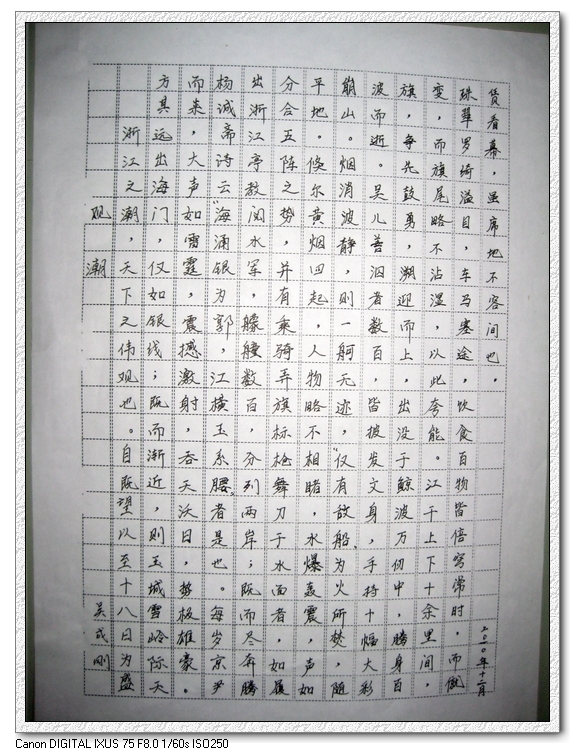 观潮
吴成刚
浙江之潮，天下之伟观也。自既望以至十八日为盛
方其远出海门，仅如银线；既而渐近，则玉城雪岭际天
而来，大声如雷霆，震撼激射，吞天沃日，势极雄豪。
杨诚斋诗云“海涌银为郭，江横玉系腰”者是也。每岁京尹
出浙江亭教阅水军，艨艟数百，分列两岸；既而尽奔腾
分合五阵之势，并有乘骑弄旗标枪舞刀于水面者，如履
平地。倏尔黄烟四起，人物略不相睹，水爆轰震，声如
崩山。烟消波静，则一舸无迹，仅有“敌船”为火所焚，随
波而逝。吴儿善泅者数百，皆披发文身，手持十幅大彩
旗，每先鼓勇，溯迎而上，出没于鲸波万仞中，腾身百
变，而旗尾略不沾湿，以此夸能。江干上下十余里间，
珠翠罗绮溢目，车马塞途，饮食百物皆倍穹常时，而僦
赁看幕，虽席地不容间也。
二〇一〇年十二月
Canon DIGITAL IXUS 75 F8.0 1/60s ISO250